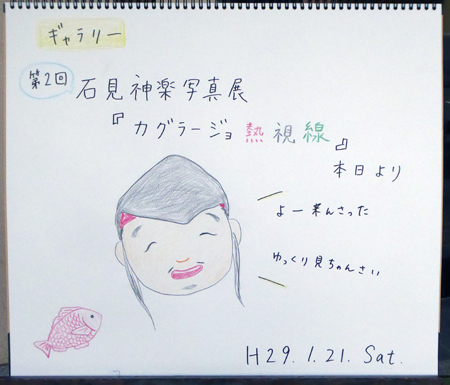 ギャラリー
第2回
石見神楽写真展
『カグラージョ熱視線』
本日より
よー来んさった
ゆっくり見ちゃんさい
H29.1.21. Sat.